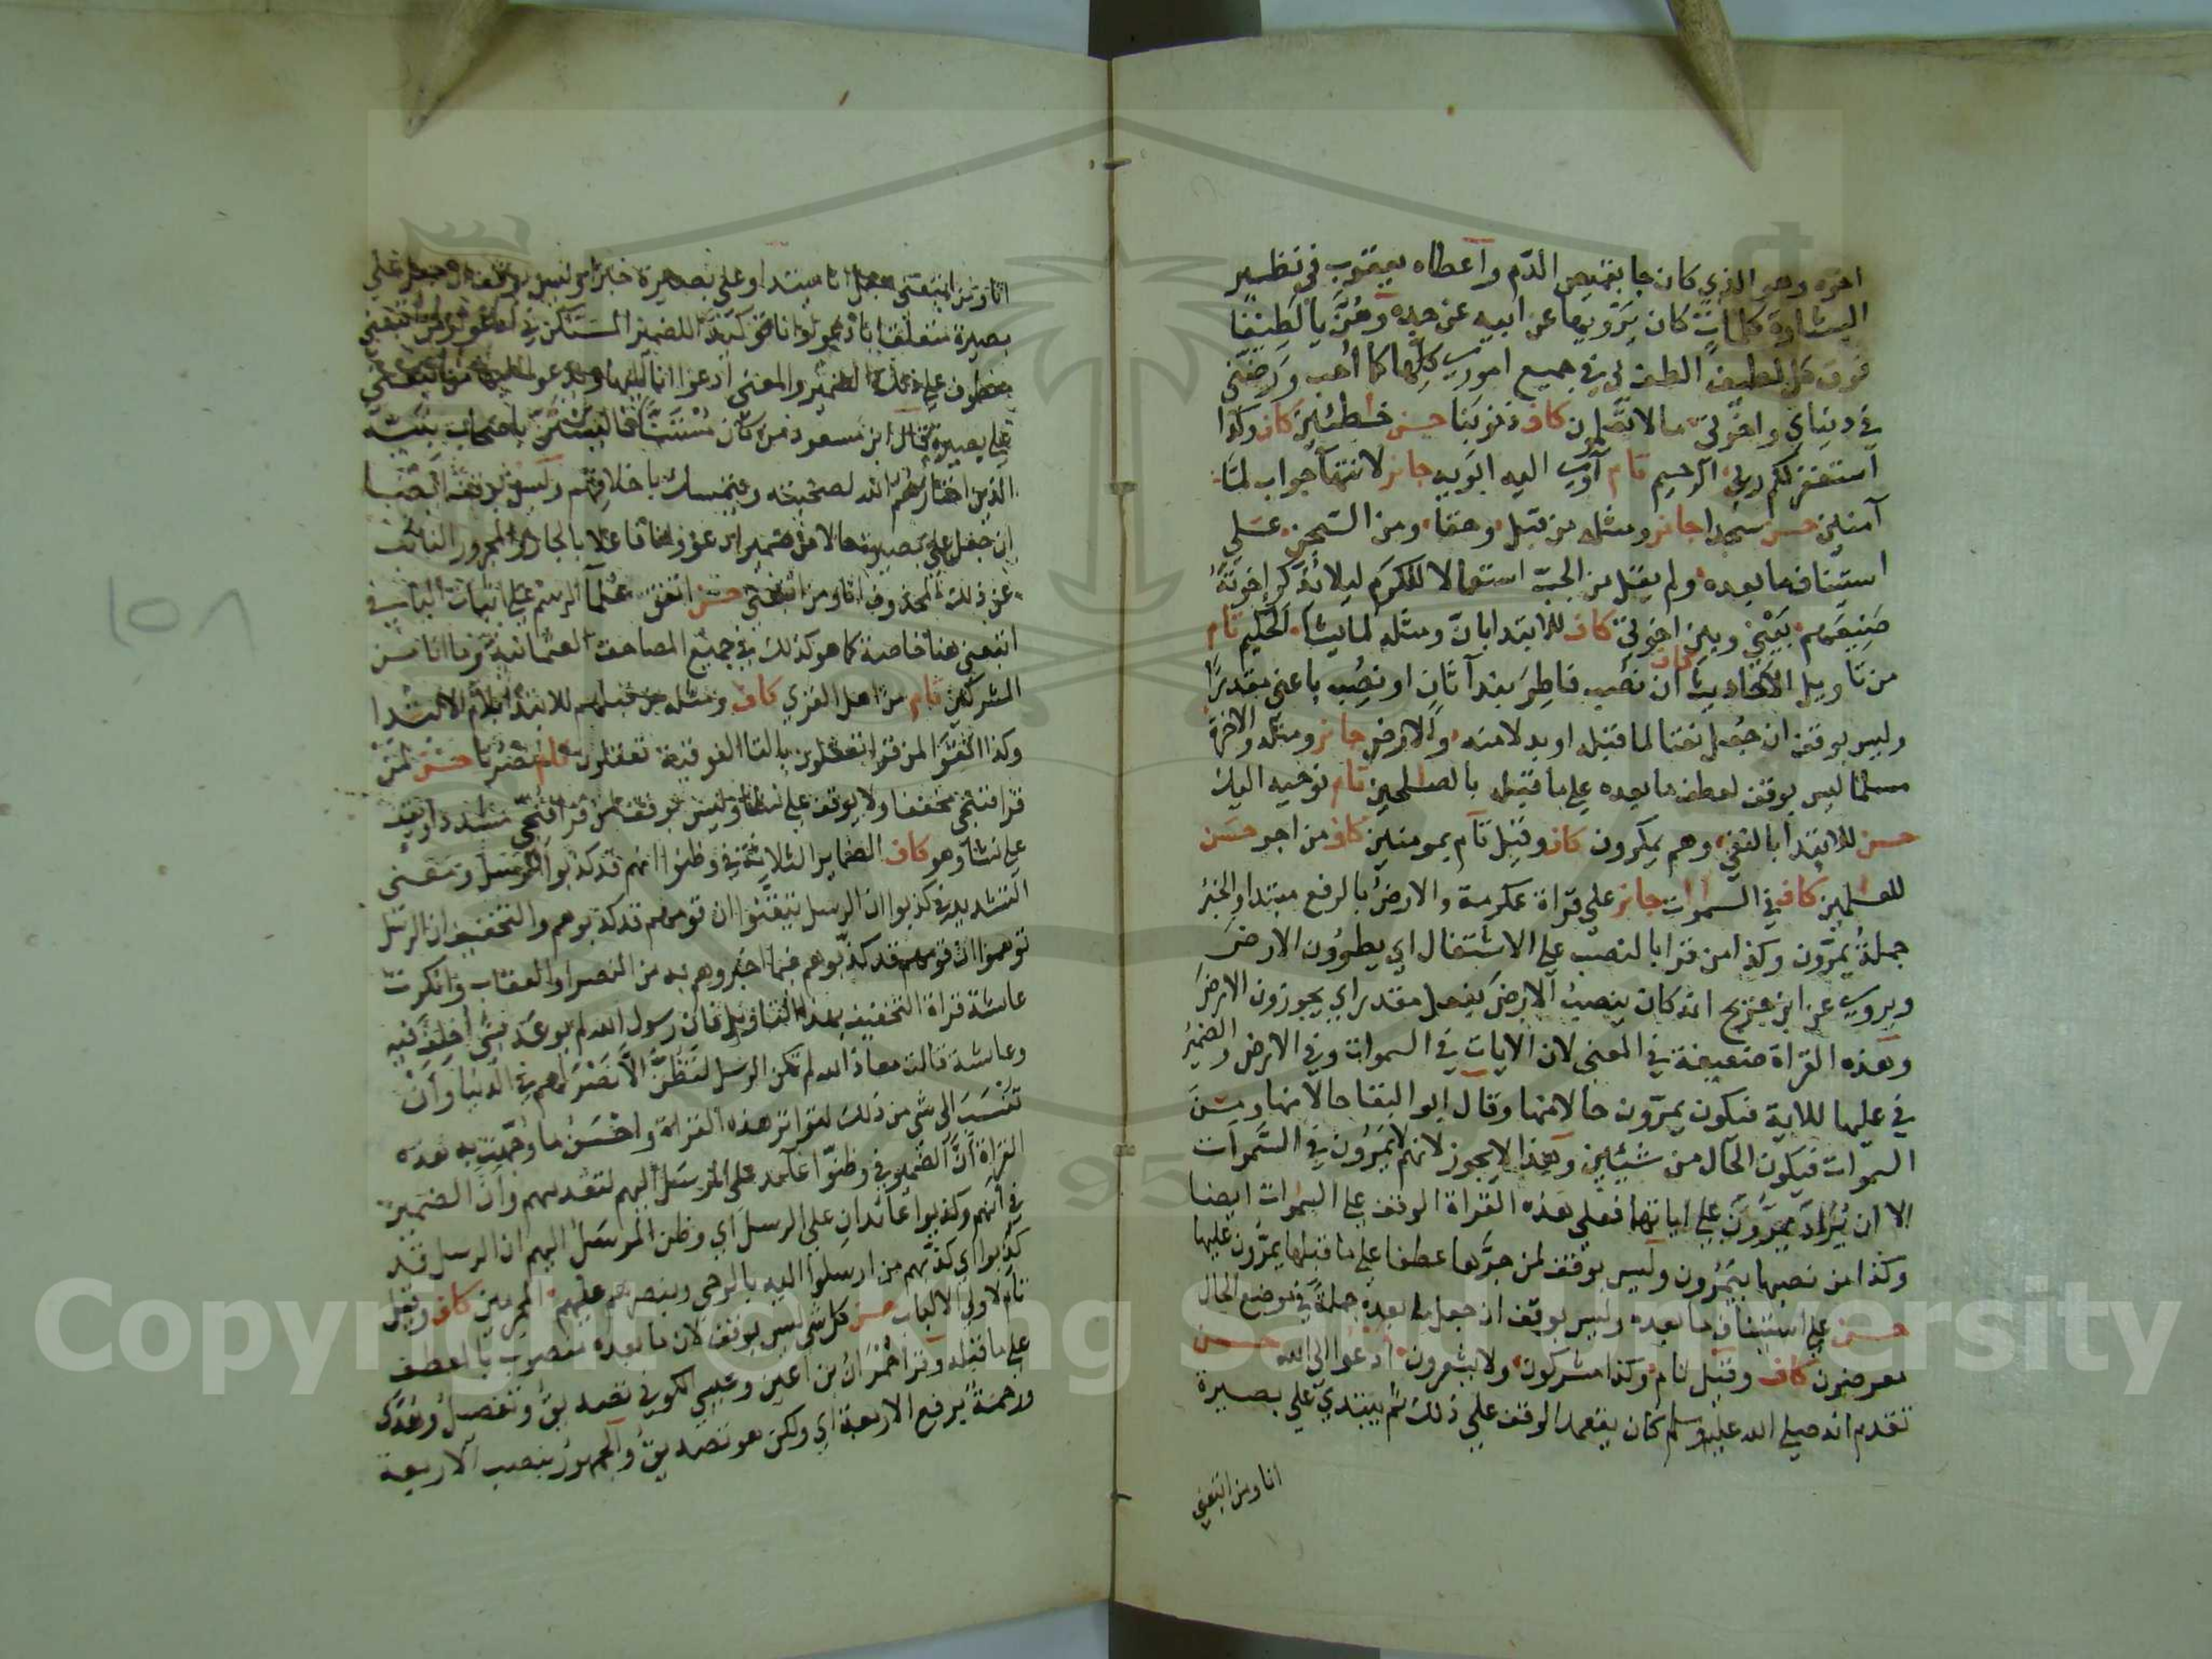 اخوه وهو الذي كان جا بقميص الدم واعطاه يعقوب في نظير
البشارة كلمات كان يرويها عن ابيه عن جده وهن يا لطيفا
فوق كل لطيف الطف بي في جميع اموري كلها كما احب ورضني
في دنياي واخرتي ما لا تعلمون كاف ذنوبنا حسن خطئين كاف وكذا
استغفر لكم ربي الرحيم تام آوي اليه ابويه جائز لانتها جواب لما
آمنين حسن سجدا جائز ومثله من قبل وحقا ومن السجن على
استيناف ما بعده ولم يقل من الجب استعمالا للكرم ليلا يذكر اخوته
صنيعهم بيني وبين اخوتي كاف للابتدا بان ومثله لما يشا الحكيم تام
من تاويل الاحاديث كاف ان نصب فاطر بندا ثان او نصب باعني مقدرا
وليس بوقف ان جعل نعتا لما قبله او بدلا منه والارض جائز ومثله والاخرة
مسلما ليس بوقف لعطف ما بعده على ما قبله بالصلحين تام نوحيه اليك
حسن للابتدا بالنفي وهم يمكرون كاف وقيل تام بمومنين كاف من اجر حسن
للعلمين كاف في السموات جائز على قراة عكرمة والارض بالرفع مبتدا والخبر
جملة يمرون وكذا من قرا بالنصب على الاشتغال اي يطوون الارض
ويروي عن ابن جريج انه كان ينصب الارض بفعل مقدر اي يجوزون الارض
وهذه القراة ضعيفة في المعنى لان الايات في السموات وفي الارض والضمير
في عليها للاية فيكون يمرون حالا منها وقال ابو البقا حالا منها ومن
السموات فيكون الحال من شيئين وهذا لا يجوز لانهم لا يمرون في السموات
الا ان يراد يمرون على اياتهما فعلى هذه القراة الوقف على السموات ايضا
وكذا من نصبها بيمرون وليس بوقف لمن جرها عطفا على ما قبلها يمرون عليها
حسن على استيناف ما بعده وليس بوقف ان جعل ما بعده جملة في موضع الحال
معرضون كاف وقيل تام وكذا مشركون ولا يشعرون ادعوا الى الله حسن
تقدم انه صلى الله عليه وسلم كان يتعمد الوقف على ذلك ثم يبتدي على بصيرة
انا ومن اتبعني
١٥٨
انا ومن اتبعني جعل انا مبتدا وعلى بصيرة خبرا وليس بوقف ان جعل على
بصيرة متعلقا بادعوا وانا توكيدا للضمير المستكن في ادعوا ومن اتبعني
معطوف على ذلك الضمير والمعنى ادعوا انا اليها ويدعوا اليها من اتبعني
على بصيرة قال ابن مسعود من كان مستنا فاليستن باصحاب نبيه
الذين اختارهم الله لصحبته ويتمسك باخلاقهم وليس بوقف ايضا
ان جعل على بصيرة حالا من ضمير ادعو وانا فاعلا بالجار والمجرور النائب
عن ذلك المحذوف انا ومن اتبعني حسن اتفق علما الرسم على اثبات الياء في
اتبعني هنا خاصة كما هو كذلك في جميع المصاحف العثمانية وما انا من
المشركين تام من اهل القرى كاف ومثله من قبلهم للابتدا بلام الابتدا
وكذا اتقوا لمن قرا تعقلون بالتا الفوقية تعقلون تام نصرنا حسن لمن
قرا فننجي مخففا ولا يوقف على نشا وليس بوقف لمن قرا فنجي مشددا ويقف
على نشا وهو كاف الضماير الثلاثة في وظنوا انهم قد كذبوا للرسل ومعنى
التشديد في كذبوا ان الرسل تيقنوا ان قومهم قد كذبوهم والتخفيف ان الرسل
توهموا ان قومهم قد كذبوهم فيما اخبروهم به من النصر او العقاب وانكرت
عائشة قراة التخفيف بهذا التاويل قالت رسول الله لم يوعد بشي اخلف فيه
وعائشة قالت معاذ الله لم تكن الرسل لتظن الا نصر لهم في الدنيا وان
تنسب الى شي من ذلك لتواتر هذه القراة واحسن ما وجهت به هذه
القراة ان الضمير في وظنوا عائد على المرسل اليهم لتقدمهم وان الضمير
في انهم وكذبوا عائدان على الرسل اي وظن المرسل اليهم ان الرسل قد
كذبوا اي كذبهم من ارسلوا اليه بالوحي وبنصرهم عليهم المجرمين كاف وقيل
تام لاولي الالباب حسن كل شي ليس بوقف لان ما بعده منصوب بالعطف
على ما قبله وقرا حمران بن اعين وعيسى الكوفي تصديق وتفصيل وهدى
ورحمة برفع الاربعة اي ولكن هو تصديق والجمهور بنصب الاربعة
Copyright © King Saud University